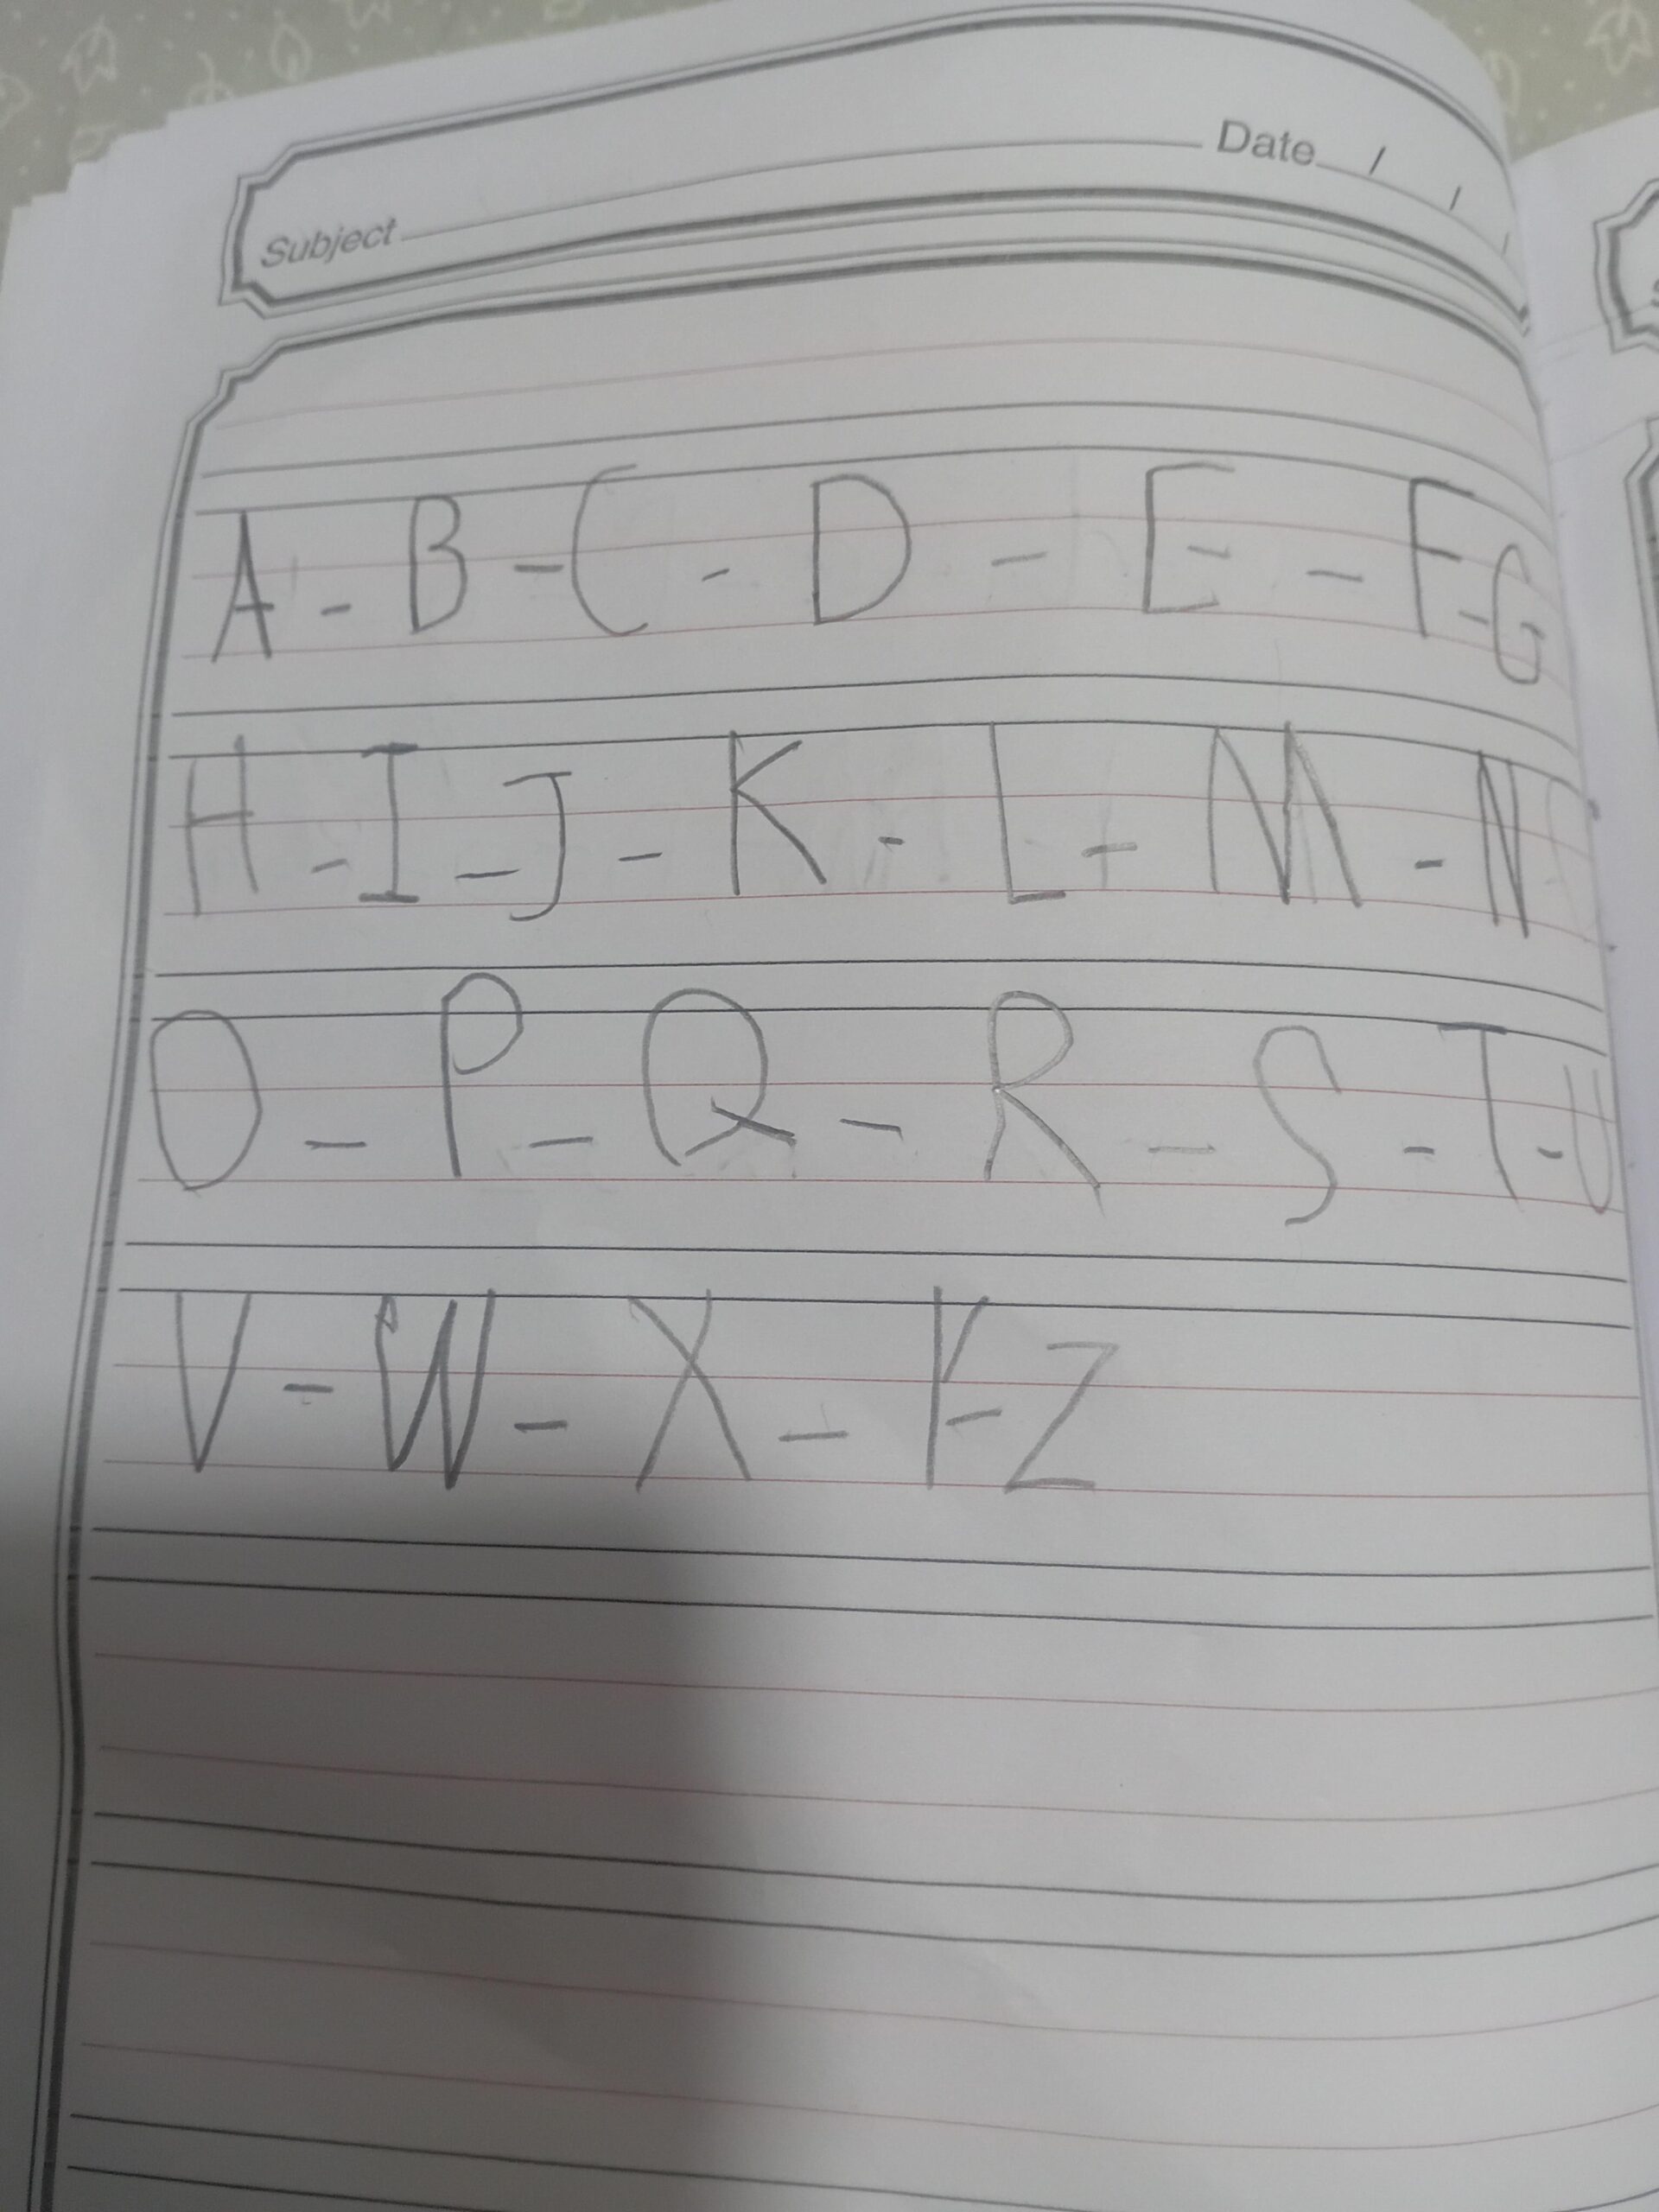 Date / /
Subject
A - B - C - D - E - F - G
H - I - J - K - L - M - N
O - P - Q - R - S - T - U
V - W - X - Y - Z